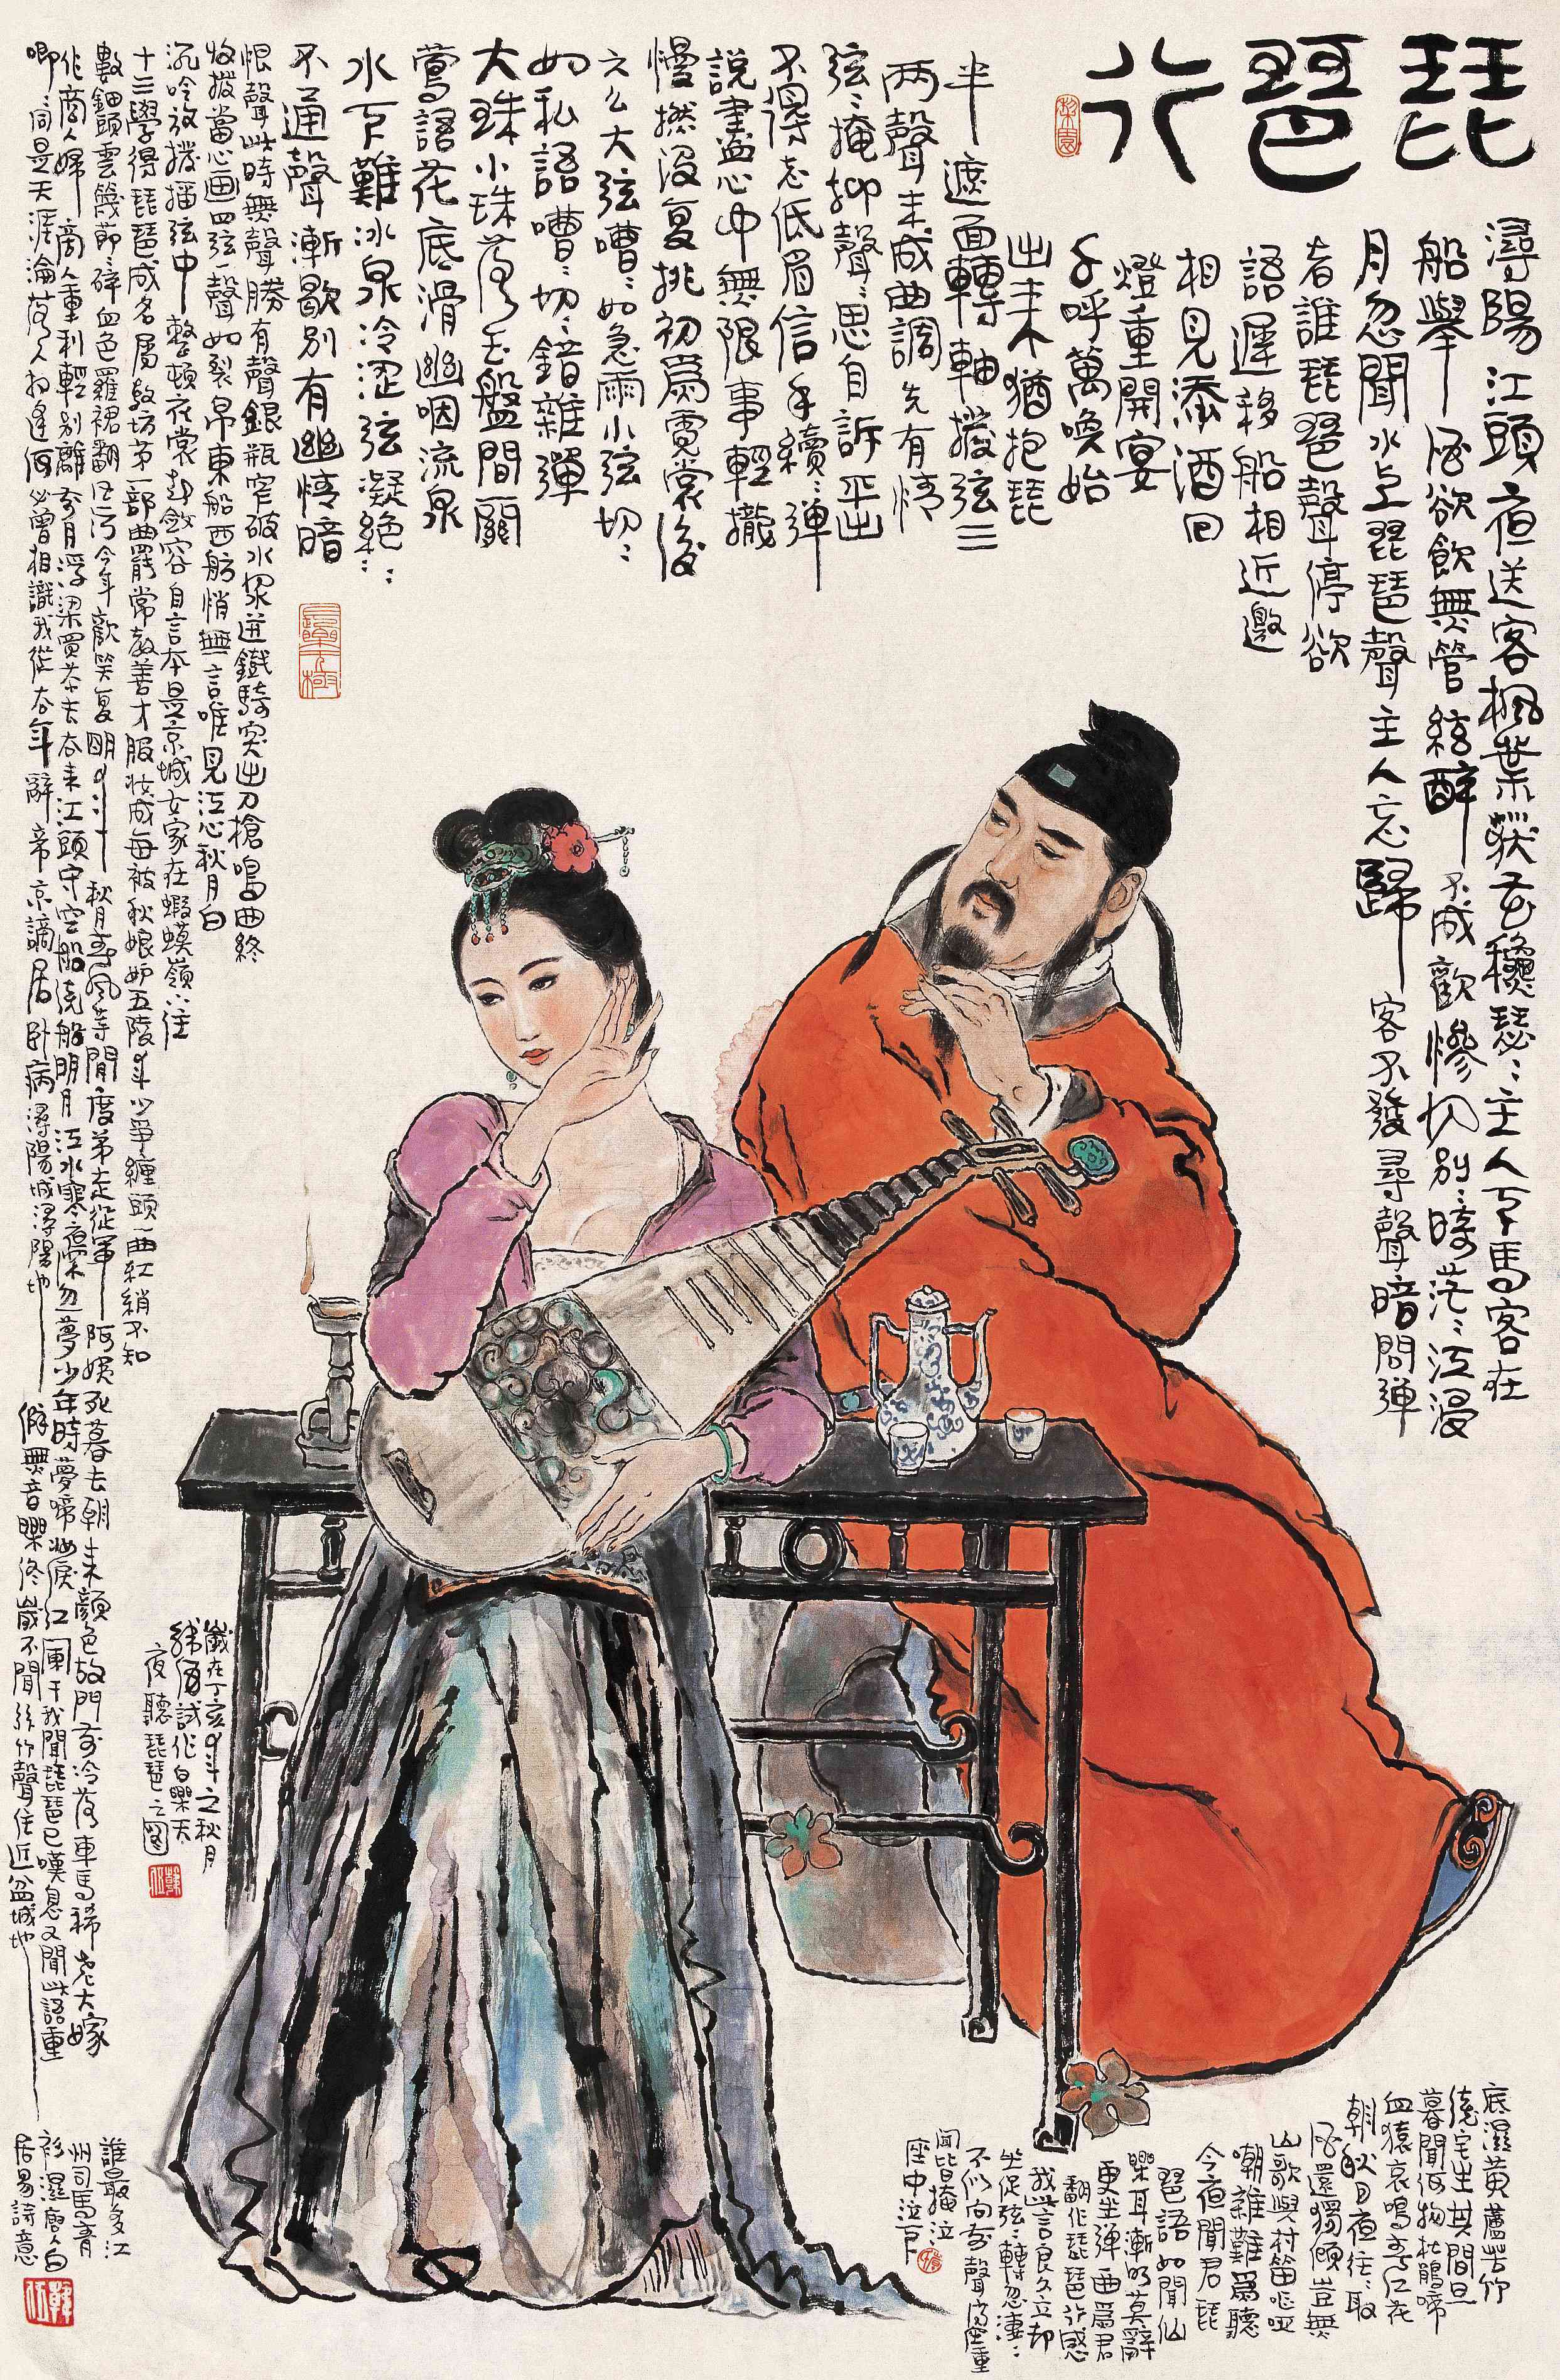 琵琶行
潯陽江頭夜送客楓葉荻花穐瑟〻主人下馬客在
船舉酒欲飲無管絃醉不成歡慘切別〻時茫〻江浸
月忽聞水上琵琶聲主人忘歸客不發尋聲暗問彈
者誰琵琶聲停欲
語遲移船相近邀
相見添酒回
燈重開宴
千呼萬喚始
出来猶抱琵
半遮面轉軸撥弦三
两聲未成曲調先有情
弦〻掩抑聲〻思自訴平生
不得志低眉信手續〻彈
說盡心中無限事輕攏
慢撚沒复挑初為霓裳後
六么大弦嘈〻如急雨小弦切〻
如私語嘈〻切〻錯雜彈
大珠小珠落玉盤間關
鶯語花底滑幽咽流泉
水下難冰泉冷涩弦凝絕〻
不通聲漸歇別有幽情暗
恨聲此時無聲勝有聲銀瓶窄破水浆迸鐵騎突出刀槍鳴曲終
收撥當心画四弦一聲如裂帛東船西舫悄無言唯見江心秋月白
沉吟放撥插弦中整頓衣裳起斂容自言本是京城女家在蝦蟆嶺下住
十三學得琵琶成名屬教坊第一部曲罷常教善才服妝成每被秋娘妒五陵年少爭纏頭一曲紅綃不知
數鈿頭雲篦節〻碎血色羅裙翻酒污今年歡笑复明年秋月春風等閒度弟走從軍阿姨死暮去朝来顏色故門前冷落車馬稀老大嫁
作商人婦商人重利輕別離前月浮梁買茶去去来江頭守空船遶船明月江水寒夜深忽夢少年時夢啼妝淚江闌干我聞琵琶已嘆息又聞此語重
唧〻同是天涯淪落人相逢何必曾相識我從去年辭帝京謫居卧病潯陽城潯陽地僻無音樂終歲不聞絲竹聲住近盆城地
底濕黃蘆苦竹
遶宅生其間旦
暮聞何物杜鵑啼
血猿哀鳴春江花
朝秋月夜往〻取
酒還獨傾豈無
山歌與村笛嘔哑
嘲雜難為聽
今夜聞君琵
琶語如聞仙
樂耳漸明莫辭
更坐彈一曲為君
翻作琵琶行感
我此言良久立却
坐促弦〻轉忽淒〻
不似向前聲滿座重
聞皆掩泣
座中泣下
誰最多江
州司馬青
衫濕唐人白
居易詩意
韓伍
歲在丁亥年之秋月
韓伍試作白樂天
夜聽琵琶之圖
韓伍